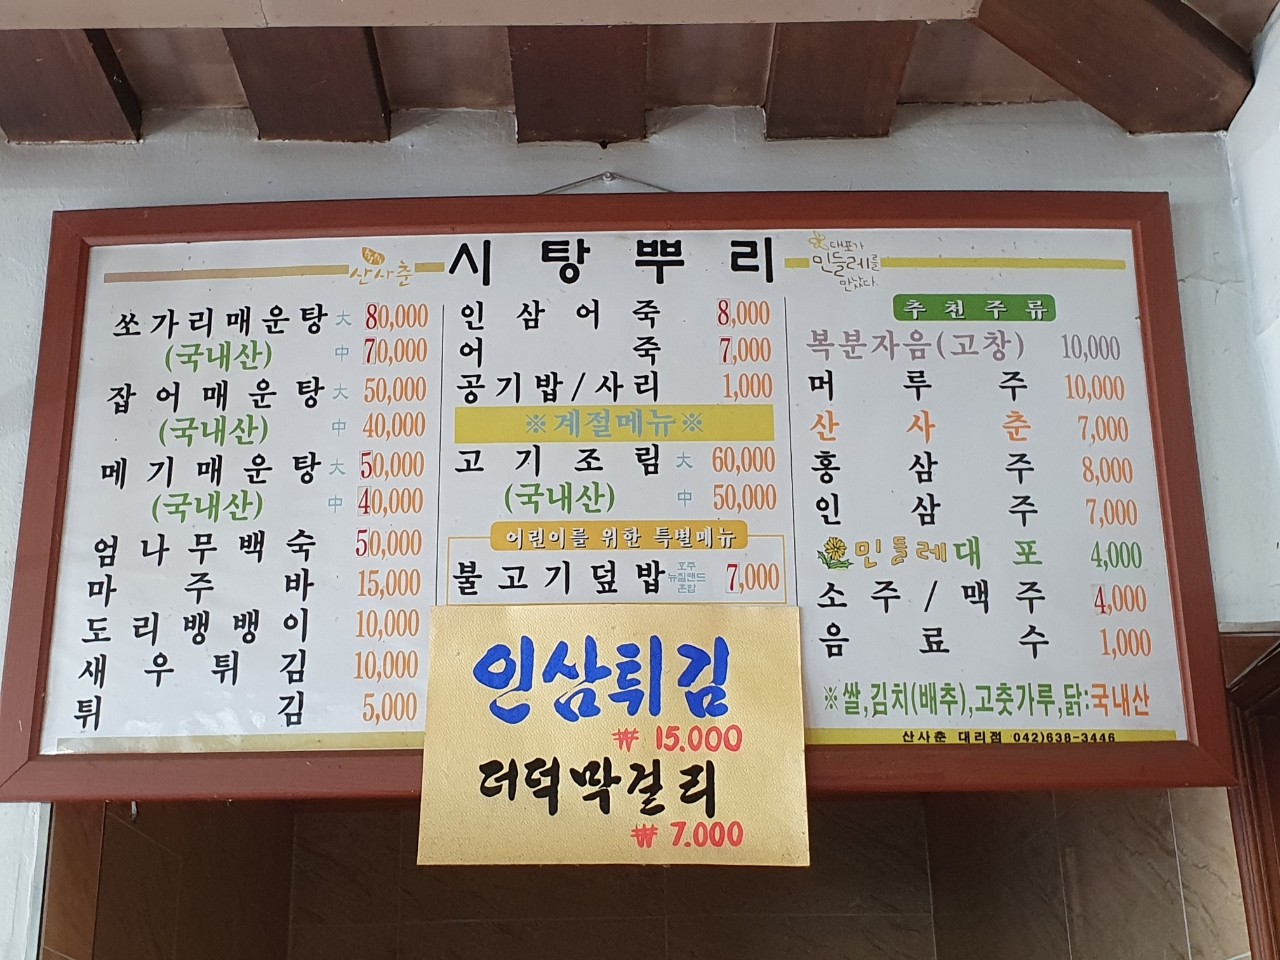 산사춘
시탕뿌리
대포가
민들레를
만났다.
쏘가리매운탕 大 80,000
(국내산) 中 70,000
잡어매운탕 大 50,000
(국내산) 中 40,000
메기매운탕 大 50,000
(국내산) 中 40,000
엄나무백숙 50,000
마주바 15,000
도리뱅뱅이 10,000
새우튀김 10,000
튀김 5,000
인삼어죽 8,000
어죽 7,000
공기밥/사리 1,000
※계절메뉴※
고기조림 大 60,000
(국내산) 中 50,000
어린이를 위한 특별메뉴
불고기덮밥 호주 뉴질랜드 혼합 7,000
인삼튀김
₩ 15.000
더덕막걸리
₩ 7.000
추천주류
복분자음(고창) 10,000
머루주 10,000
산사춘 7,000
홍삼주 8,000
인삼주 7,000
민들레대포 4,000
소주/맥주 4,000
음료수 1,000
※쌀,김치(배추),고춧가루,닭:국내산
산사춘 대리점 042)638-3446